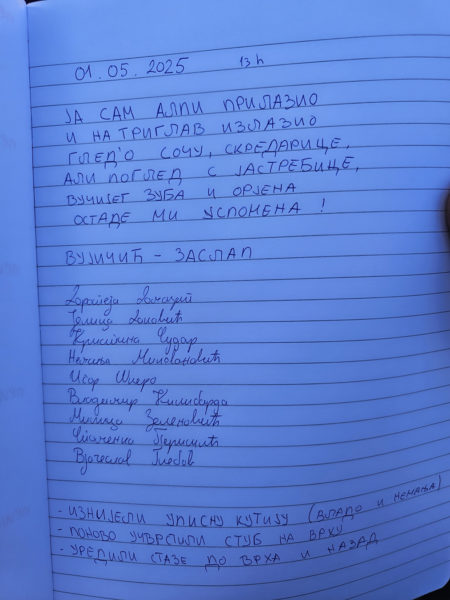 01.05.2025 13h
ЈА САМ АЛПИ ПРИЛАЗИО
И НА ТРИГЛАВ ИЗЛАЗИО
ГЛЕД'О СОЧУ, СКРЕДАРИЦЕ,
АЛИ ПОГЛЕД С ЈАСТРЕБИЦЕ,
ВУЧИЈЕГ ЗУБА И ОРЈЕНА
ОСТАДЕ МИ УСПОМЕНА !
ВУЈИЧИЋ - ЗАСЛАП
Јелица
Кристина Чудар
Немања Миловановић
Игор Шкеро
Владимир Килибарда
Милица Зеленовић
Вјачеслав Глебов
- ИЗНИЈЕЛИ УПИСНУ КУТИЈУ (ВЛАДО И НЕМАЊА)
- ПОНОВО УЧВРСТИЛИ СТУБ НА ВРХУ
- УРЕДИЛИ СТАЗЕ ДО ВРХА И НАЗАД